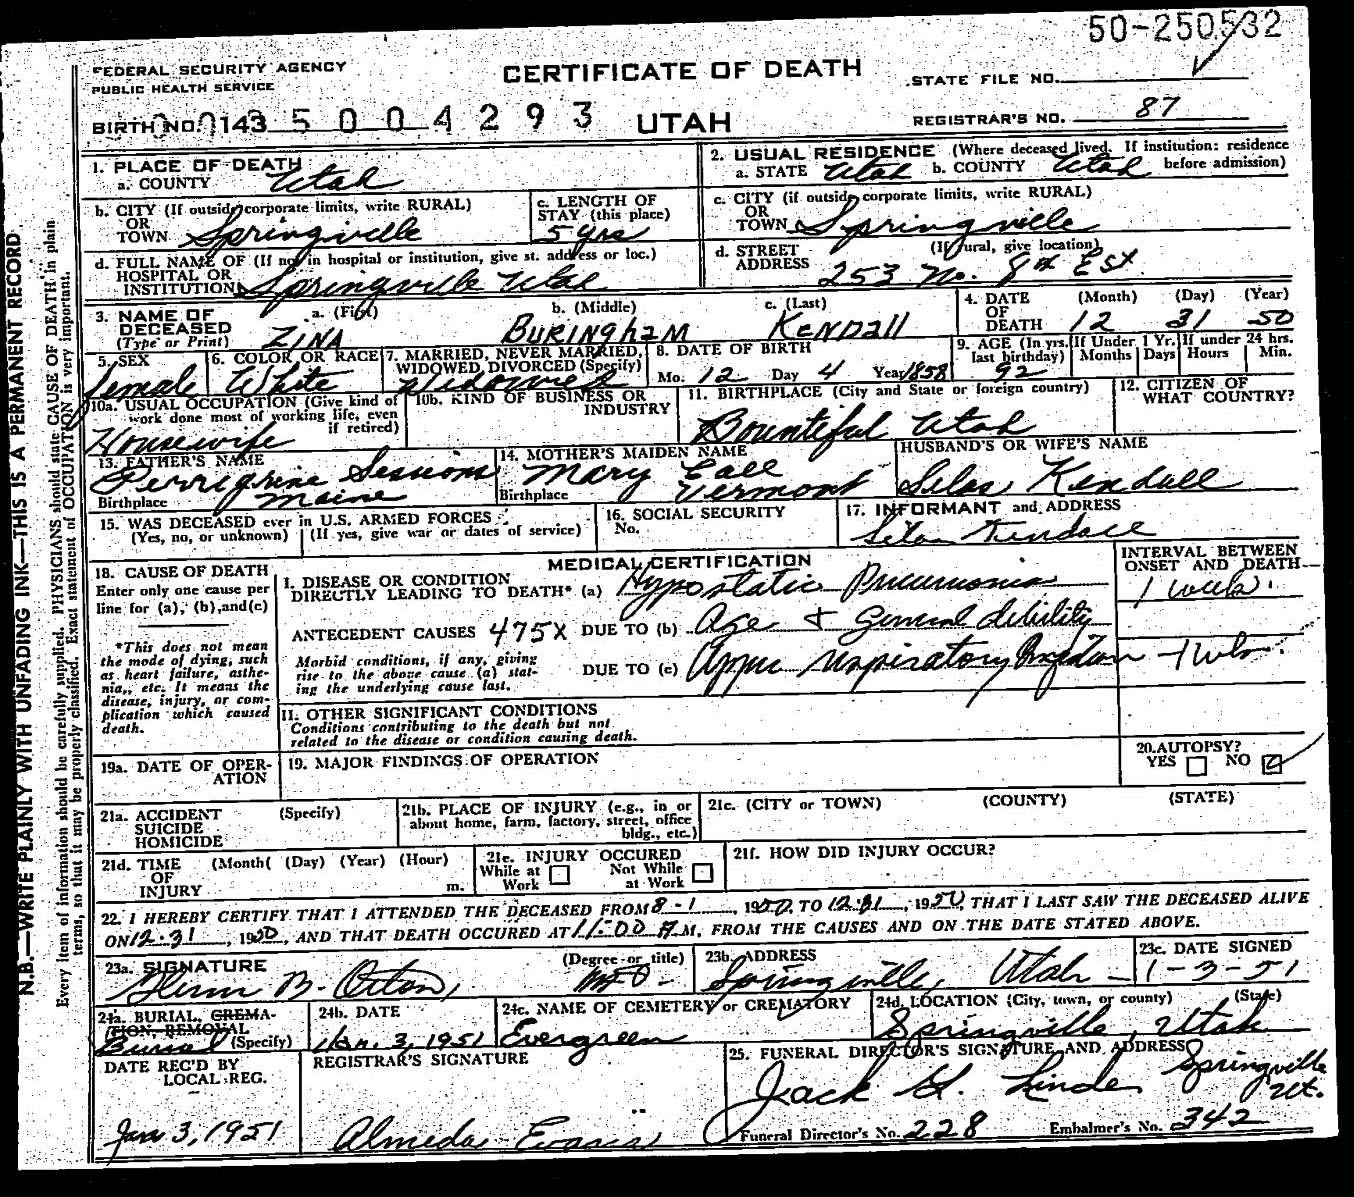 50-250532
FEDERAL SECURITY AGENCY
PUBLIC HEALTH SERVICE
CERTIFICATE OF DEATH
STATE FILE NO.
BIRTH NO. 143 5 0 0 4 2 9 3 UTAH
REGISTRAR'S NO. 87
N.B.—WRITE PLAINLY WITH UNFADING INK—THIS IS A PERMANENT RECORD
Every item of information should be carefully supplied. PHYSICIANS should state CAUSE OF DEATH in plain
terms, so that it may be properly classified. Exact statement of OCCUPATION is very important.
1. PLACE OF DEATH
a. COUNTY Utah
2. USUAL RESIDENCE (Where deceased lived. If institution: residence
a. STATE Utah b. COUNTY Utah before admission)
b. CITY (If outside corporate limits, write RURAL)
OR
TOWN Springville
c. LENGTH OF
STAY (this place)
5 yrs
c. CITY (if outside corporate limits, write RURAL)
OR
TOWN Springville
d. FULL NAME OF (If not in hospital or institution, give st. address or loc.)
HOSPITAL OR
INSTITUTION Springville Utah
d. STREET (If rural, give location)
ADDRESS 253 No. 8th East
3. NAME OF
DECEASED
(Type or Print)
a. (First) b. (Middle) c. (Last)
ZINA BURINGHAM KENDALL
4. DATE (Month) (Day) (Year)
OF
DEATH 12 31 50
5. SEX
female
6. COLOR OR RACE
White
7. MARRIED, NEVER MARRIED,
WIDOWED, DIVORCED (Specify)
Widowed
8. DATE OF BIRTH
Mo. 12 Day 4 Year 1858
9. AGE (In yrs.
last birthday)
92
If Under 1 Yr.
Months Days
If under 24 hrs.
Hours Min.
10a. USUAL OCCUPATION (Give kind of
work done most of working life, even
if retired)
Housewife
10b. KIND OF BUSINESS OR
INDUSTRY
11. BIRTHPLACE (City and State or foreign country)
Bountiful Utah
12. CITIZEN OF
WHAT COUNTRY?
13. FATHER'S NAME
Perrigrine Sessions
Birthplace Maine
14. MOTHER'S MAIDEN NAME
Mary Call
Birthplace Vermont
HUSBAND'S OR WIFE'S NAME
Silas Kendall
15. WAS DECEASED ever in U.S. ARMED FORCES?
(Yes, no, or unknown) (If yes, give war or dates of service)
16. SOCIAL SECURITY
No.
17. INFORMANT and ADDRESS
Kendall
MEDICAL CERTIFICATION
INTERVAL BETWEEN
ONSET AND DEATH
18. CAUSE OF DEATH
Enter only one cause per
line for (a), (b), and (c)
*This does not mean
the mode of dying, such
as heart failure, asthe-
nia, etc. It means the
disease, injury, or com-
plication which caused
death.
I. DISEASE OR CONDITION
DIRECTLY LEADING TO DEATH* (a) Hypostatic Pneumonia 1 week.
ANTECEDENT CAUSES 475X DUE TO (b) Age & General debility
Morbid conditions, if any, giving
rise to the above cause (a) stat-
ing the underlying cause last.
DUE TO (c) Upper respiratory
II. OTHER SIGNIFICANT CONDITIONS
Conditions contributing to the death but not
related to the disease or condition causing death.
19a. DATE OF OPER-
ATION
19. MAJOR FINDINGS OF OPERATION
20. AUTOPSY?
YES NO
21a. ACCIDENT (Specify)
SUICIDE
HOMICIDE
21b. PLACE OF INJURY (e.g., in or
about home, farm, factory, street, office
bldg., etc.)
21c. (CITY or TOWN) (COUNTY) (STATE)
21d. TIME (Month( (Day) (Year) (Hour)
OF
INJURY m.
21e. INJURY OCCURED
While at Not While
Work at Work
21f. HOW DID INJURY OCCUR?
22. I HEREBY CERTIFY THAT I ATTENDED THE DECEASED FROM 8-1, 1950, TO 12-31, 1950, THAT I LAST SAW THE DECEASED ALIVE
ON 12-31, 1950, AND THAT DEATH OCCURED AT 11:00 A M, FROM THE CAUSES AND ON THE DATE STATED ABOVE.
23a. SIGNATURE (Degree or title)
Glenn B. Orton, M.D.
23b. ADDRESS
Springville, Utah
23c. DATE SIGNED
1-3-51
24a. BURIAL, CREMA-
TION, REMOVAL
Burial (Specify)
24b. DATE
Jan. 3, 1951
24c. NAME OF CEMETERY or CREMATORY
Evergreen
24d. LOCATION (City, town, or county) (State)
Springville, Utah
DATE REC'D BY
LOCAL REG.
Jan 3, 1951
REGISTRAR'S SIGNATURE
Almeda Evans
25. FUNERAL DIRECTOR'S SIGNATURE AND ADDRESS
Jack Linde Springville
Ut.
Funeral Director's No. 228 Embalmer's No. 342